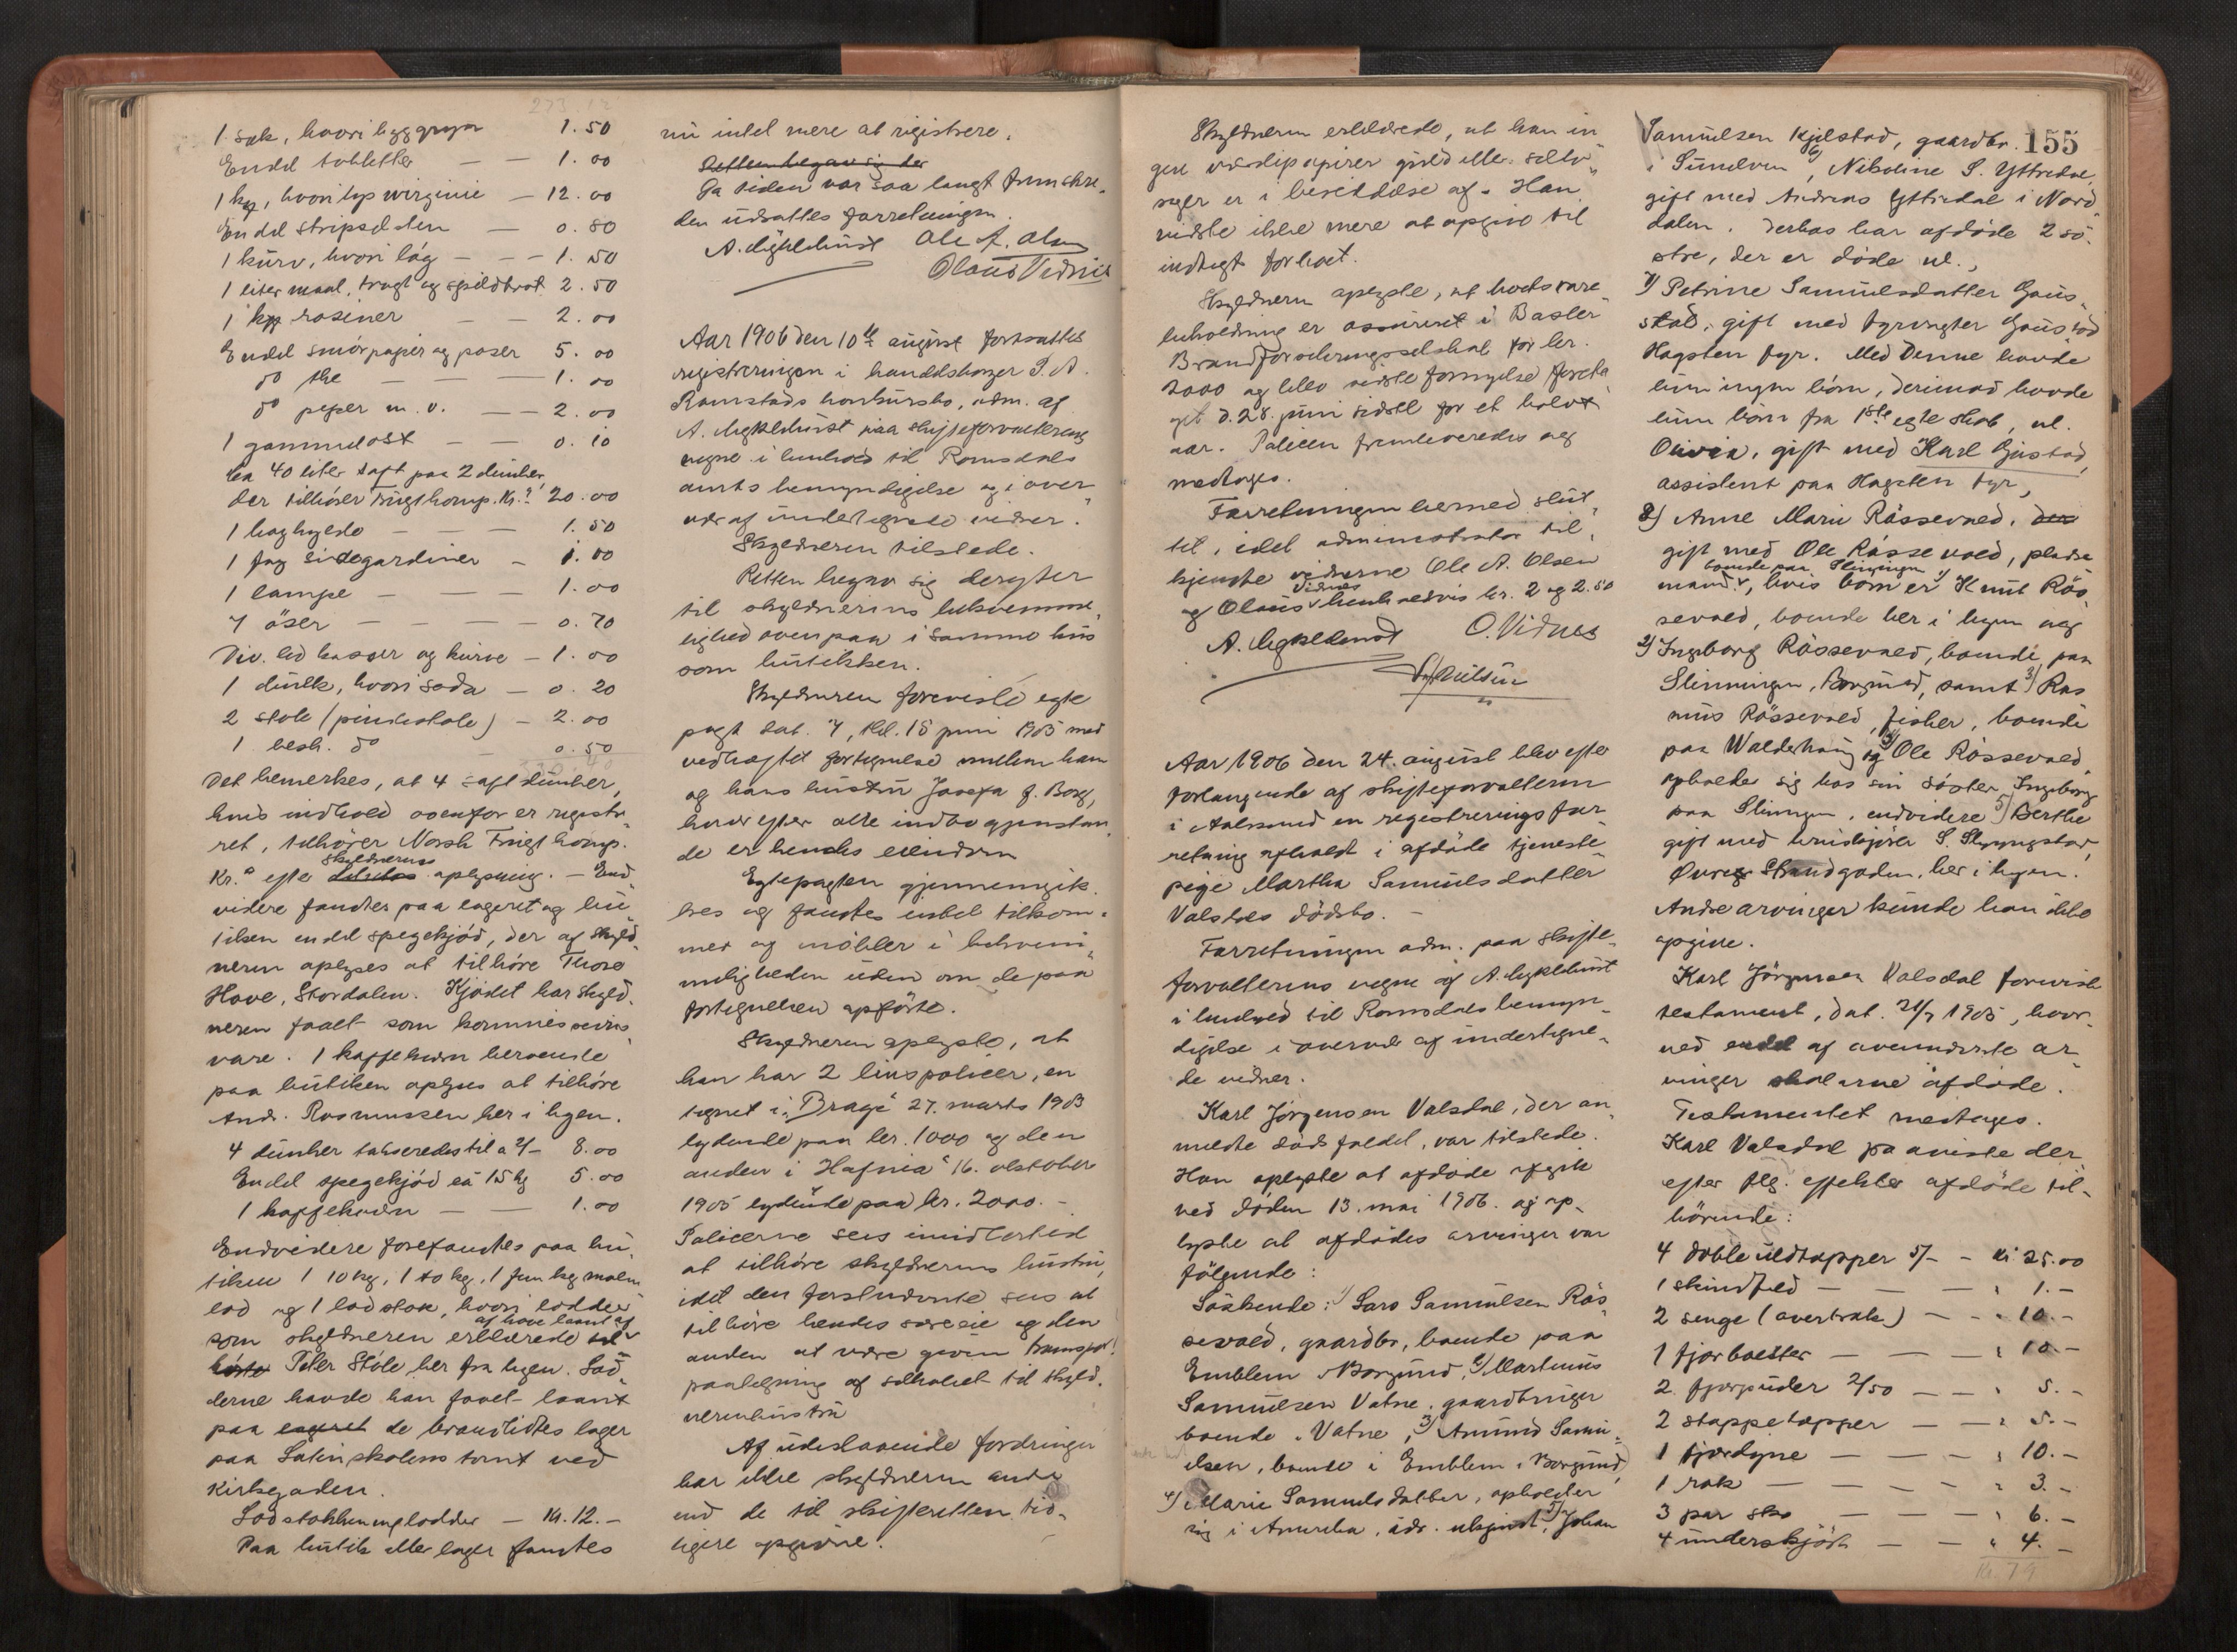 273.12
1 sæk, hvori byggryn 1.50
Endel tabletter — — 1.00
1 kg, hvori lys wirginie — 12.00
Endel stripseleten — 0.80
1 kurv, hvori løg — — — 1.50
1 liter maal, tragt og spildbrat 2.50
1 kg rosiner — — 2.00
Endel smörpapir og poser 5.00
do the — — — 1.00
do peper m.v. — — 2.00
1 gammelost — — 0.10
Ca 40 liter saft paa 2 dunker,
der tilhörer Frugtkomp. Kr.? 20.00
1 baghylde — — — 1.50
1 fag sidegardiner — 1.00
1 lampe — — — 1.00
7 öser — — — — 0.70
Div. led kasser og kurve — 1.00
1 dunk, hvori soda — 0.20
2 stole (pindestole) — 2.00
1 besk. do — 0.50
Det bemerkes, at 4 saftdunker,
hvis indhold ovenfor er registr-
ret, tilhörer Norsk Frugtkomp.
skyldnerens
Kr.a efter oplysning. — End-
videre fandtes paa lageret og bu-
tiken endel spegekjöd, der af skyld-
neren oplyses at tilhöre Thore
Hove, Stordalen. Kjödet har skyld-
neren faaet som kommissions-
vare. 1 kaffekvern beroende
paa butiken oplyses at tilhöre
Andr. Rasmussen her i byen.
4 dunker takseredes til a 2/- 8.00
Endel spegekjöd ca 15 kg 5.00
1 kaffekvern — — 1.00
Endvidere forefandtes paa bu-
tiken 1 10 kg, 1 10 kg, 1 fem kg malm
lod og 1 lodstok, hvori lodder
at have laant af
som skyldneren erklærede til
hörte Peter Stöle her fra byen. Lod-
derne havde han faaet laant
paa lageret de brandlidtes lager
paa Latinskolens tomt ved
Kirkegaden.
Lodstokken og lodder — Kr. 12.—
Paa butik eller lager fandtes
nu intet mere at registrere.
Retten begav sig der
Da tiden var saa langt fremskre-
den udsattes forretningen.
A. Lykkeberst Ole A. Olsen
Olaus Vidnes
Aar 1906 den 10de august fortsattes
registreringen i handelsborger P. A.
Ramstads konkursbo, adm. af
A. Lykkeberst paa skifteforvalterens
vegne i henhold til Romsdals
amts bemyndigelse og i over-
vær af undertegnede vidner.
Skyldneren tilstede.
Retten begav sig derefter
til skyldnerens bekvemme-
lighed ovenpaa i samme hus
som butikken.
Skyldneren foreviste egte
pagt dat. 7, tgl. 15 juni 1905 med
vedhæftet fortegnelse mellem ham
og hans hustru Josefa f. Borg,
hvorefter alle indbogjenstan-
de er hendes eiendom
Egtepagten gjennemgik-
kes og fandtes intet tilkom-
met og möbler i bekvem-
meligheden uden om de paa
fortegnelsen opförte.
Skyldneren oplyste, at
han har 2 livspolicer, en
tegnet i „Brage“ 27. marts 1903
lydende paa kr. 1000 og den
anden i „Hafnia“ 16. oktober
1905 lydende paa kr. 2000.—
Policerne sees imidlertid
at tilhöre skyldnerens hustru,
idet den förstnævnte sees at
tilhöre hendes særeie og den
anden at være given transport
paategning af selskabet til skyld-
nerens hustru
Af udestaaende fordringer
har ikke skyldneren andre
end de til skifteretten tid-
ligere opgivne.
Skyldneren erklærede, at han in
gen værdipapirer guld eller sölv-
sager er i besiddelse af. Han
vidste ikke mere at opgive til
indtægt for boet.
Skyldneren oplyste, at boets vare
beholdning er assureret i Basler
Brandforsikringsselskab for kr.
2000 og blev sidste fornyelse foreta-
get d. 28. juni sidstl for et halvt
aar. Policen fremleveredes og
medtoges.
Forretningen hermed slut-
tet, idet administrator til-
kjendte vidnerne Ole A. Olsen
Vidnes
og Olaus henholdsvis kr. 2 og 2.50
A. Lykkeberst O. Vidnes
Aar 1906 den 24. august blev efter
forlangende af skifteforvalteren
i Aalesund en registreringsfor-
retning afholdt i afdöde tjeneste-
pige Martha Samuelsdatter
Valsdals dödsbo. —
Forretningen adm. paa skifte-
forvalterens vegne af A. Lykkeberst
i henhold til Romsdals bemyn-
digelse i overvær af undertegne-
de vidner.
Karl Jörgensen Valsdal, der an-
meldte dödsfaldet, var tilstede.
Han oplyste at afdöde afgik
ved döden 13. mai 1906. og op-
lyste at afdödes arvinger var
fölgende:
Söskende: 1) Lars Samuelsen Rös-
sevold, gaardbr, boende paa
Emblem i Borgund, 2) Martinus
Samuelsen Vatne, gaardbruger
boende i Vatne, 3) Amund Samu-
elsen, boende i Emblem i Borgund,
4) Marie Samuelsdatter, opholder
sig i Amerika, adr. ukjendt, 5) Johan
155
Samuelsen Kjelstad, gaardbr.
i Sunelven, 6) Nikoline S. Yttredal,
gift med Andreas Yttredal i Nord
dalen. Derhos har afdöde 2 sö-
stre, der er döde nl.,
7) Petrine Samuelsdatter Gaus-
stad, gift med fyrvogter Gaustad
Hogsten fyr. Med denne havde
hun ingen börn, derimod havde
hun börn fra 1ste egteskab, nl.
Olivia, gift med Karl Gjustad,
assistent paa Hogsten fyr,
8) Anne Marie Rössevold, der
gift med Ole Rössevold, plads-
boende paa Slinningen
mand, hvis börn er 1) Knut Rös-
sevold, boende her i byen og
2) Ingeborg Rössevold, boende paa
Slinningen, Borgund, samt 3) Ras
mus Rössevold, fisker, boende
paa Walderhaug og 4) Ole Rössevold,
opholder sig hos sin söster Ingeborg
paa Slinningen, endvidere 5) Berthe
gift med S. Skyngstad,
Övre Strandgaden, her i byen.
Andre arvinger kunde han ikke
opgive.
Karl Jörgensen Valsdal foreviste
testament, dat. 21/7 1905, hvor-
ved endel af ovennævnte ar-
vinger skal arve afdöde.
Testamentet medtoges.
Karl Valsdal paaviste der
efter flg. effekter afdöde til-
hörende:
4 doble uldtæpper 5/- — kr 25.00
1 skindfeld — — — „ 1.—
2 senge (overtræk) — — „ 10.—
1 fjærbolster — — — „ 10.—
2 fjærpuder 2/50 — — „ 5.—
2 stoppetæpper — — „ 5.—
1 fjærdyne — — — „ 10.—
1 rok — — — — „ 3.—
3 par sko — — — „ 6.—
4 underskjört — — „ 4.—
kr 79